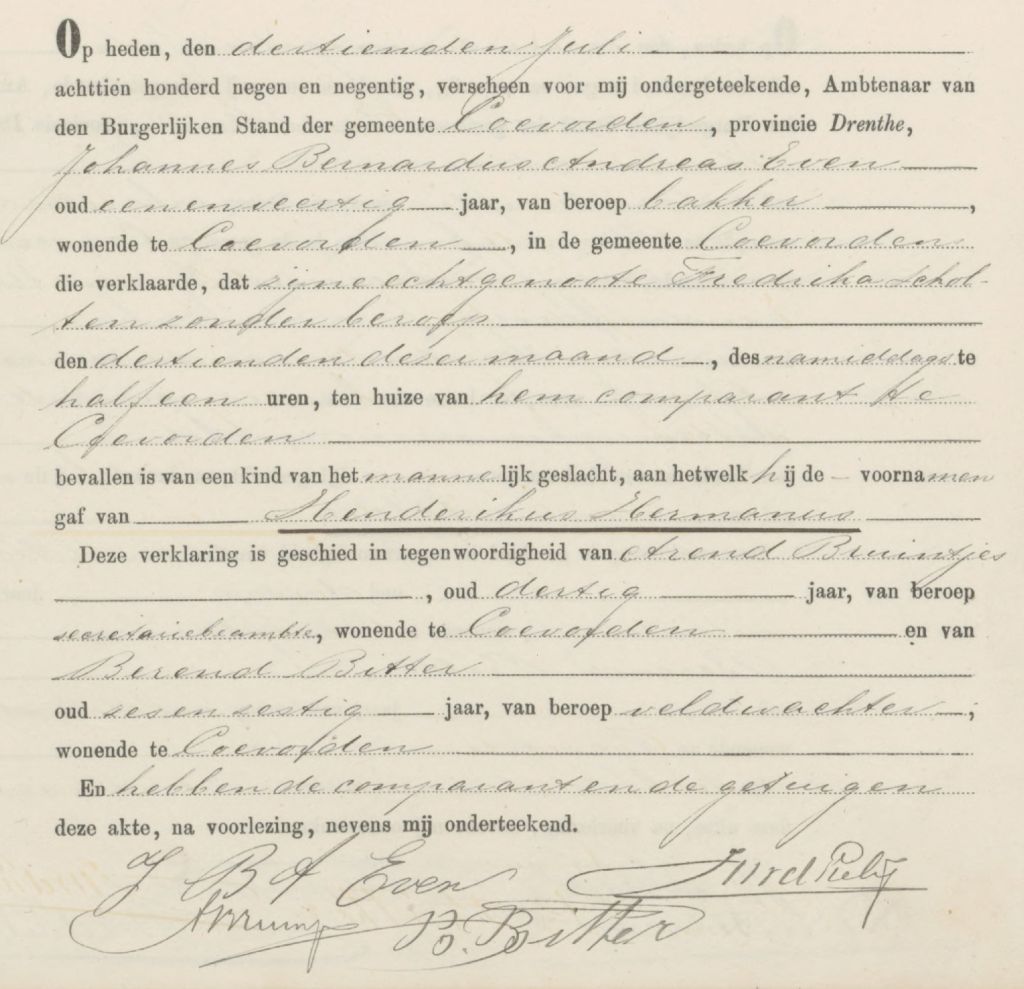 Op heden, den dertienden Juli
achttien honderd negen en negentig, verscheen voor mij ondergeteekende, Ambtenaar van
den Burgerlijken Stand der gemeente Coevorden, provincie Drenthe,
Johannes Bernardus Andreas Even
oud een en veertig jaar, van beroep bakker,
wonende te Coevorden, in de gemeente Coevorden
die verklaarde, dat zijne echtgenoote Fredrika Schol-
ten zonder beroep
den dertienden dezer maand, des namiddags te
half een uren, ten huize van hem comparant te
Coevorden
bevallen is van een kind van het mannelijk geslacht, aan hetwelk hij de – voornamen
gaf van Henderikus Hermanus
Deze verklaring is geschied in tegenwoordigheid van Arend Bruintjes
, oud dertig jaar, van beroep
secretariebeambte, wonende te Coevorden en van
Berend Bitter
oud zes en zestig jaar, van beroep veldwachter,
wonende te Coevorden
En hebben de comparant en de getuigen
deze akte, na voorlezing, nevens mij onderteekend.
J B A Even
B. Bitter